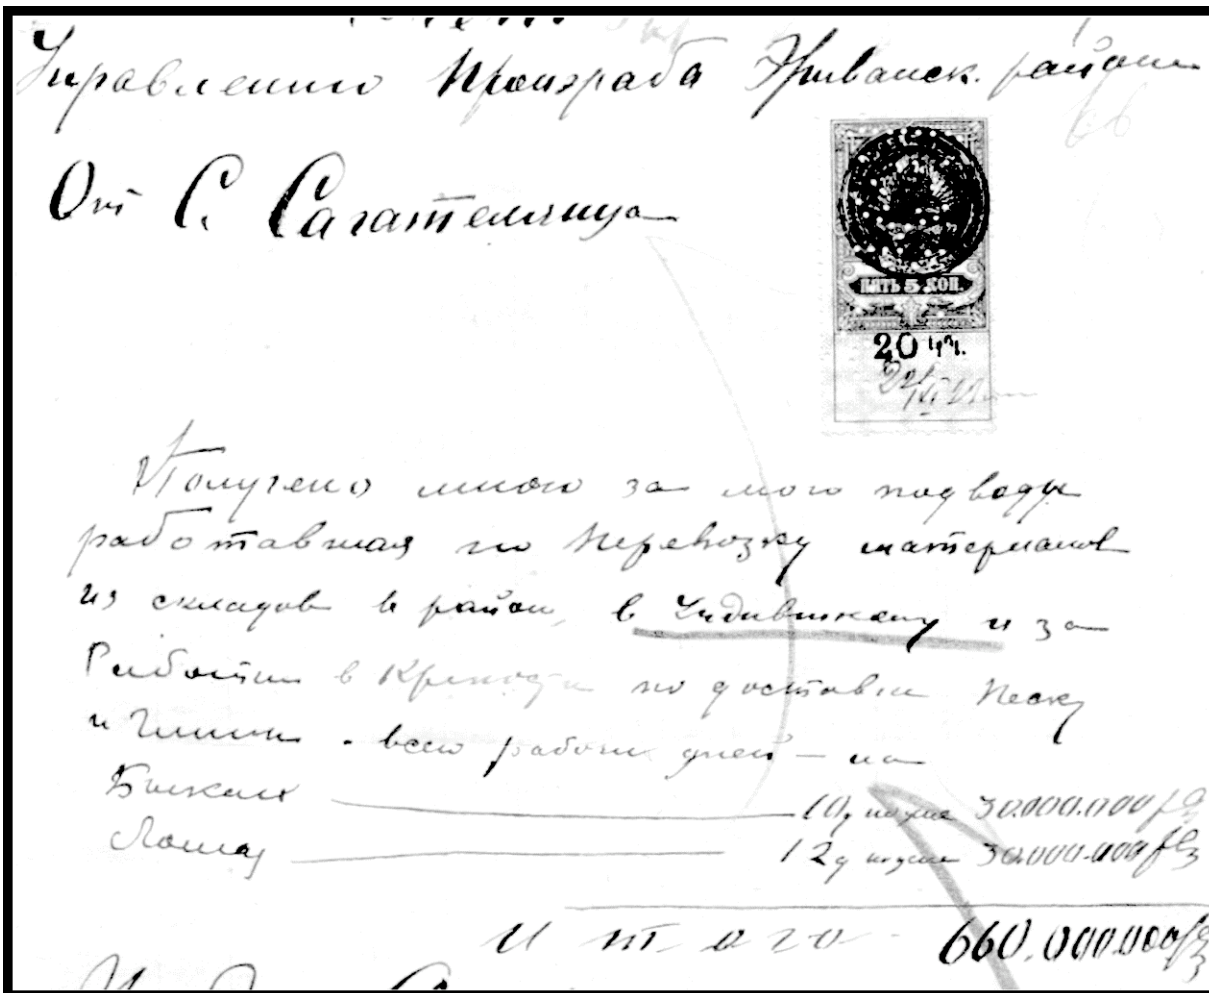 Управлению Прораба Эриванск. района
От С. Сагателянца
ПЯТЬ 5 КОП.
20
Получено мною за мою подводу
работавшая по перевозку материалов
из складов в район, в и за
Работы в Крепости по доставки песку
и Глины. всего работы дней — на
Быках 10 д 30.000.000 р
Лошад 12 д 30.000.000 р
Итого 660.000.000 р